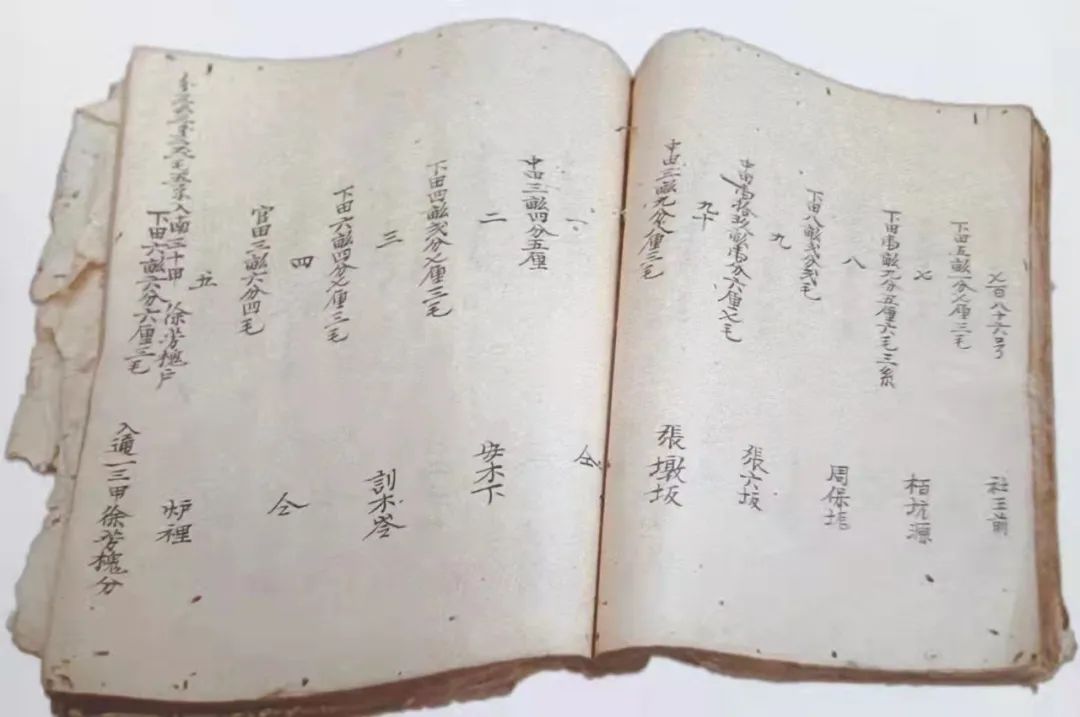 七百八十六号 社王前
下田五畝一分七厘三毛
七 栢坑源
下田壱畝九分五厘六毛三系
八 周保塢
下田八畝弍分弍毛
九 張六坂
中田 六厘七毛
九十 張墩坂
中田三畝九分八厘三毛
一 仝
中田三畝四分五厘
二 安木下
下田四畝弍分七厘三毛
三 訓木峇
下田六畝四分七厘三毛
四 仝
官田三畝六分四毛
五 炉裡
入南三十甲 徐芳槐户
下田六畝六分六厘三毛
入通一三甲徐芳槐分